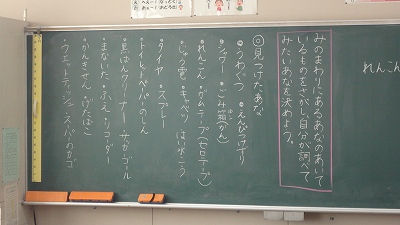 みのまわりにあるあなのあいて
いるものをさがし、自分が調べて
みたいあなを決めよう。
◎見つけたあな
・うわぐつ ・えんぴつけずり
・シャワー ・ごみ箱(かん)
・れんこん ・ガムテープ(セロテープ)
・じゅう電 ・キャベツ はいすいこう
・タイヤ ・スプレー
・トイレットペーパーのしん
・黒ばんクリーナー サッカーゴール
・まないた ・ふえ ・リコーダー
・かんきせん ・げたばこ
・ウエットティッシュ ・スーパーのカゴ
れんこん